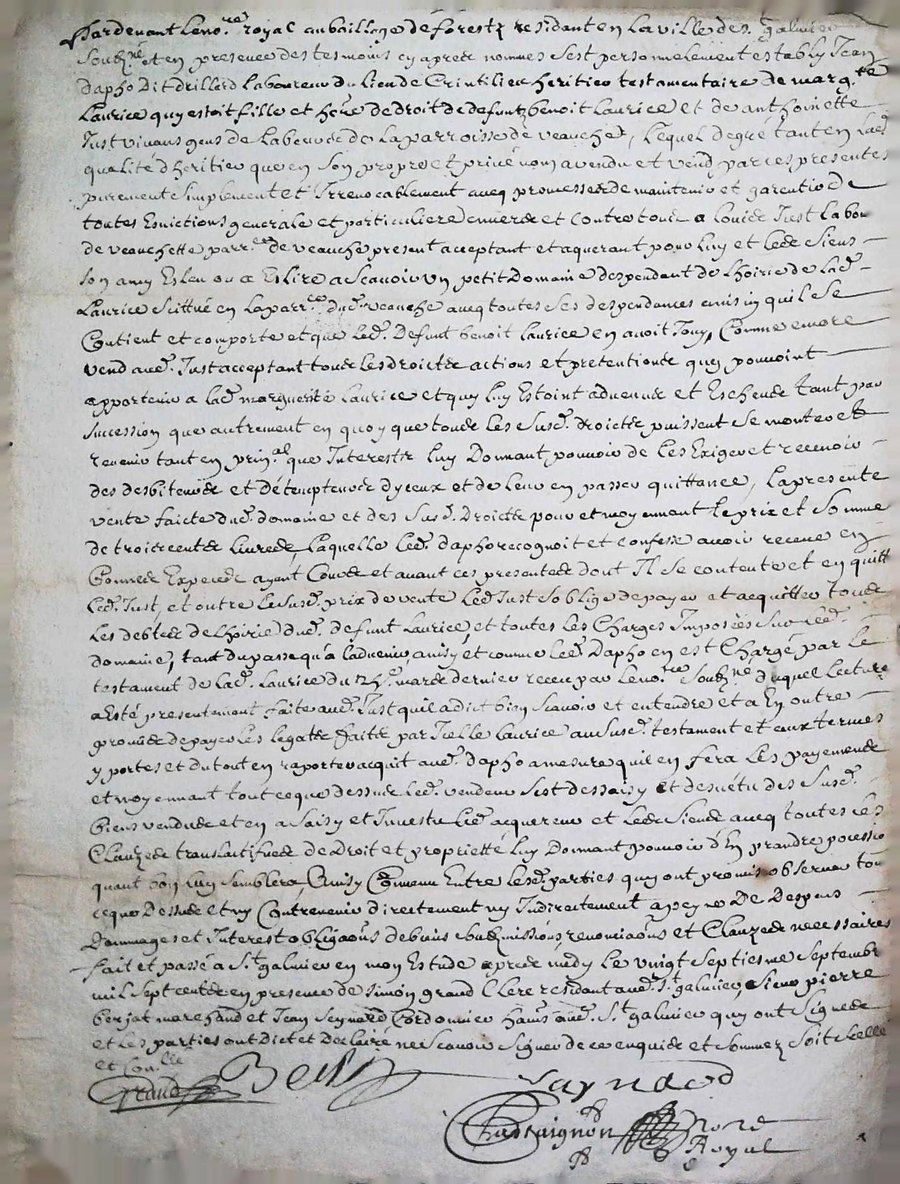 Pardevant le no.re royal au bailliage de forestz residant en la ville de S.t galmier
soubz.né et en presence des tesmoins cy apres nommes sest personnellement estably Jean
dapho dit drillard laboureur du lieu de heritier testamentaire de marg.te
Laurice quy estoit fille et here de droit de defuntz benoit Laurice et de anthoinette
Just vivans gens de labeur de la parroisse de veauche, Lequel de gré tant en lad.
qualité dheritier que en son propre et privé nom a vendu et vend par ces presentes
purement simplement et Irrevocablement avecq promesse de maintenir et garentir de
toutes Evictions generalle et particuliere envers et contre tous a Just labour
de veauchette parr.sse de veauche present acceptant et aquerant pour luy et les siens
son amy Esleu ou a Eslire a scavoir un petit Domaine despendant de Lhoirie de lad.
Laurice scittué en la parr.sse dud. veauche avecq toutes ses despendances ainsin quil se
Contient et comporte et que led. Defunt benoit Laurice en avoit Jouy, Comme encore
vend aud. Just acceptant tous les droictz actions et pretentions quy pouvoint
appartenir a lad. marguerite Laurice et quy luy Estoint advenus et Escheus tant par
succession que autrement en quoy que tous les susd. droictz puissent se monter et
revenir tant en prin.al que Interestz luy Donnant pouvoir de les Exiger et recevoir
des desbiteurs et détempteurs dyceux et de leur en passer quittance, la presente
vente faicte dud. domaine et des susd. Droictz pour et moyennant le prix et somme
de trois cents livres, Laquelle led. dapho recognoit et confesse avoir receue en
bonnes Especes ayant Cours et avant ces presentes dont Il se contente et en quitte
led. Just, et outre le susd. prix de vente led. Just soblige de payer et acquitter tous
les debtes de lhoirie dud. defunt Laurice, et toutes les Charges Imposées sur led.
domaine, tant du passé qu'a ladvenir, ainsy et comme led. Dapho en est Chargé par le
testament de lad. Laurice du mars dernier receu par le no.re soubz.né duquel Lecture
a Esté presentement faite aud. Just quil a dict bien scavoir et entendre et a En outre
promis de payer les legats faits par Icelle Laurice au susd. testament et aux termes
y portes et du tout en raporter acquit aud. dapho a mesure quil en fera les payements
et moyennant tout ce que dessus led. vendeur sest dessaisy et desvétu des susd.
biens vendus et en a saisy et Investu led. acquereur et les siens avecq toutes les
Clauzes translatifves de Droit et proprietté luy Donnant pouvoir d'En prandre pocession
quant bon luy semblera, Ainsy Convenu Entre lesd. parties quy ont promis observer tout
ce que Dessus et ny Contrevenir directement ny Indirectement a peyne De Despens
Dommages et Interest obliga͠ons de biens soubzmissions renoncia͠ons et Clauzes necessaires
fait et passé a S.t galmier en mon Estude apres midy le vingt septiesme septembre
mil sept cents en presence de simon grand Clerc residant aud. S.t galmier, sieur pierre
berjat marchand et Jean seynard Cordonnier hau.s aud. S.t galmier quy ont signes
et les parties ont dict et desclairé ne scavoir signer de ce enquis et sommez soit scellé
et Con.llé
Grand Saynard
Chastaignon no.re
Royal